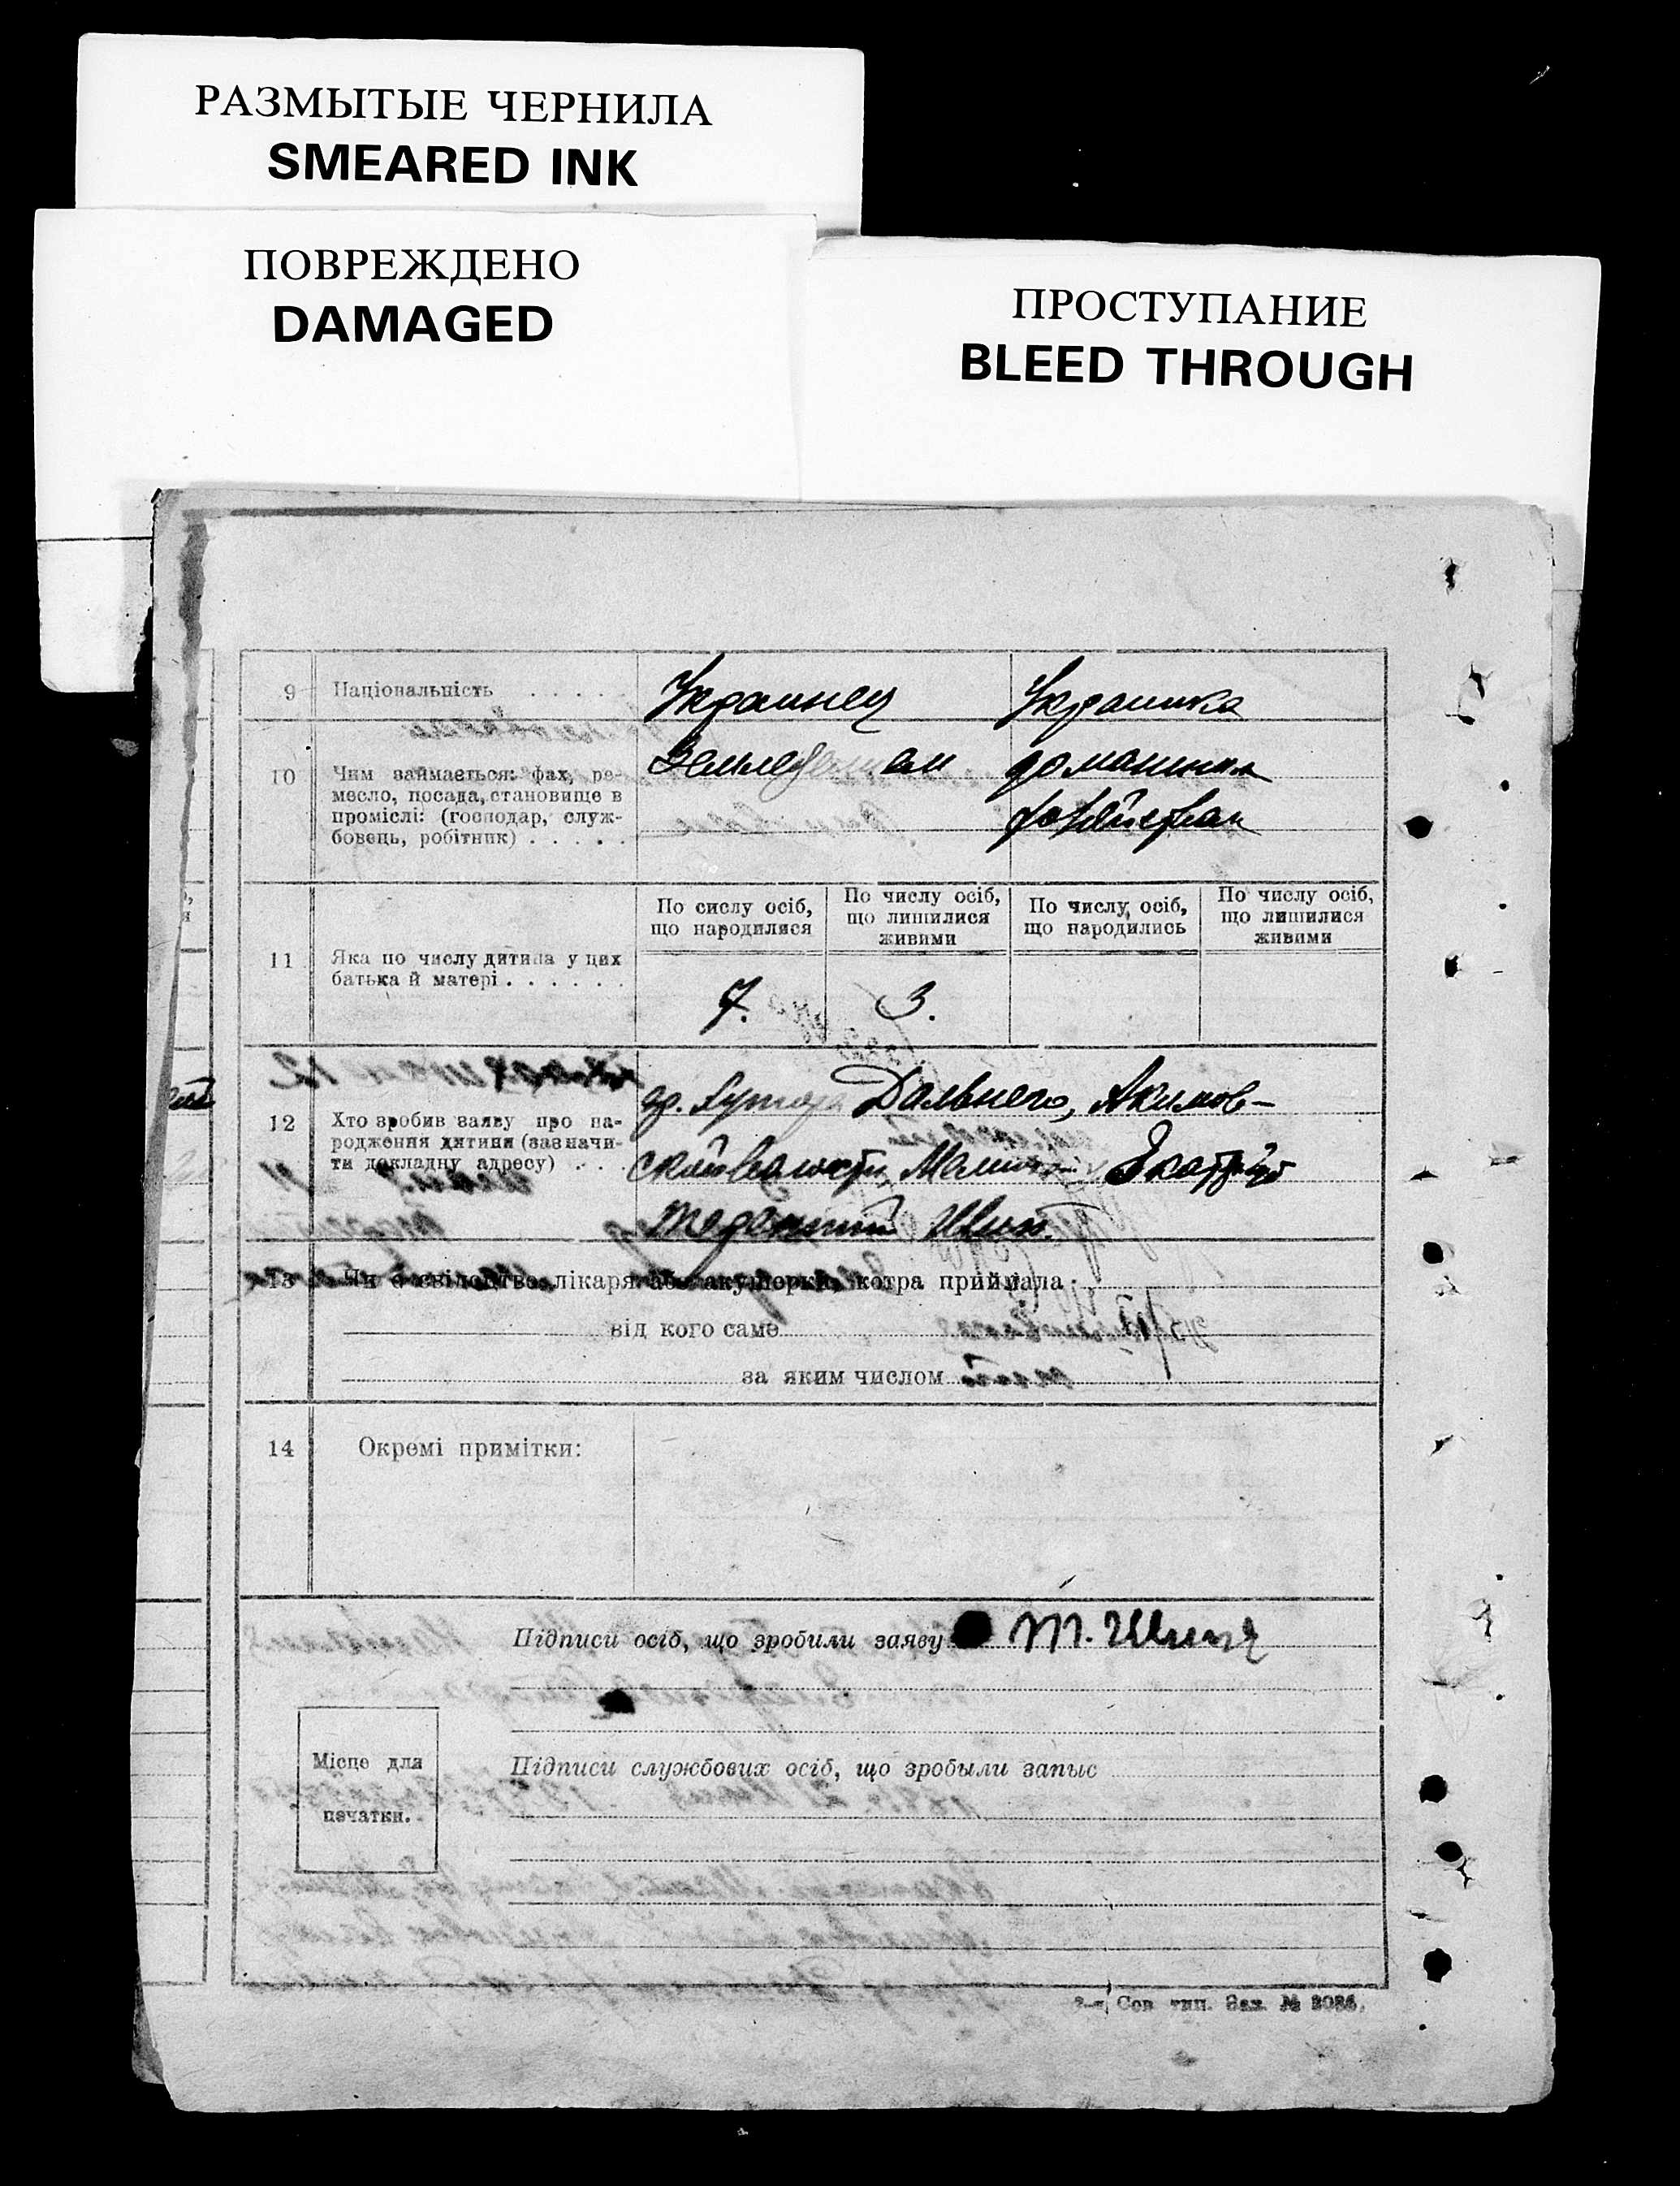 РАЗМЫТЫЕ ЧЕРНИЛА
SMEARED INK
ПОВРЕЖДЕНО
DAMAGED
ПРОСТУПАНИЕ
BLEED THROUGH
9 Національність . . . . . Украинец Украинка
10 Чим займається: фах, ре-
месло, посада, становище в
проміслі: (господар, служ-
бовець, робітник) . . . . .
домашним
хозяйствам
11 Яка по числу дитина у цих
батька й матері . . . . . .
По сислу осіб,
що народилися
По числу осіб,
що лишилися
живими
По числу осіб,
що народились
По числу осіб,
що лишилися
живими
7. 3.
12 Хто зробив заяву про на-
родження дитини (зазначи-
ти докладну адресу) . . .
гр. хутора Дальнего, Акимов-
ской волости,
13 Чи є свідоцтво лікаря або акушерки, котра приймала
від кого саме
за яким числом
14 Окремі примітки:
Підписи осіб, що зробили заяву
Місце для
печатки.
Підписи службових осіб, що зробыли запыс
Сов тип. Зак. №